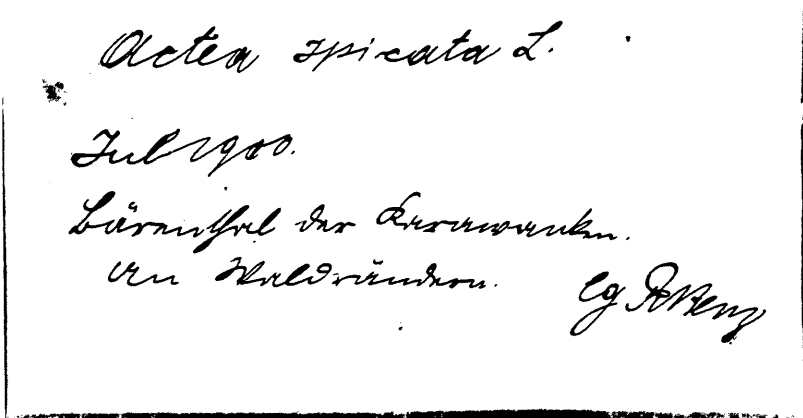 Actea spicata L.
Jul 1900.
Bärenthal der Karawanken.
an Waldrändern.
lg R Benz